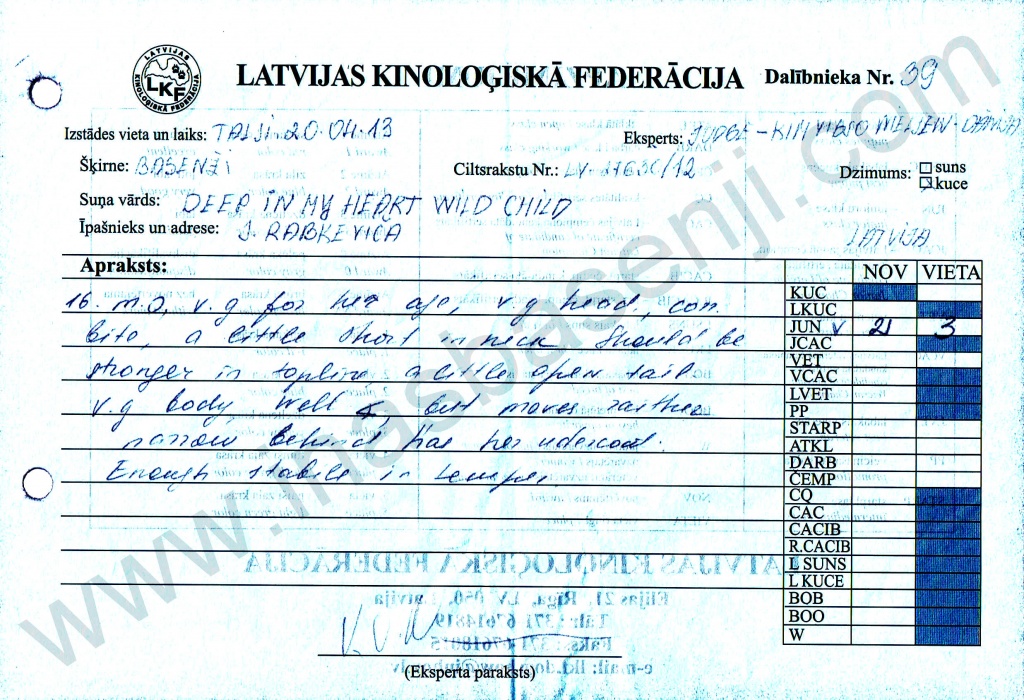 LATVIJAS KINOLOĢISKĀ FEDERĀCIJA LKF
LATVIJAS KINOLOĢISKĀ FEDERĀCIJA
Dalībnieka Nr. 39
Izstādes vieta un laiks: TALSI 20.04.13
Eksperts: JUDGE - KIM
Šķirne: BASENŽI
Ciltsrakstu Nr.: LV-
/12
Dzimums:
suns
kuce
Suņa vārds: DEEP IN MY HEART WILD CHILD
Īpašnieks un adrese: J. RABKEVICA
LATVIJA
Apraksts:
NOV VIETA
16. m.o, v.g for her age, v.g head, con.
bite, a little short in neck, should be
stronger in topline, a little open tail
v.g body, well but moves rather
narrow behind, has her undercoat.
Enough stabile in temper
KUC
LKUC
JUN v 21 3
JCAC
VET
VCAC
LVET
PP
STARP
ATKL
DARB
ČEMP
CQ
CAC
CACIB
R.CACIB
L SUNS
L KUCE
BOB
BOO
W
LATVIJAS KINOLOĢISKĀ FEDERĀCIJA
Rīga, LV
Latvija
Tālr: +371 67614819
e-mail: lkf.dogshow@inbox.lv
(Eksperta paraksts)
www.masbasenji.com